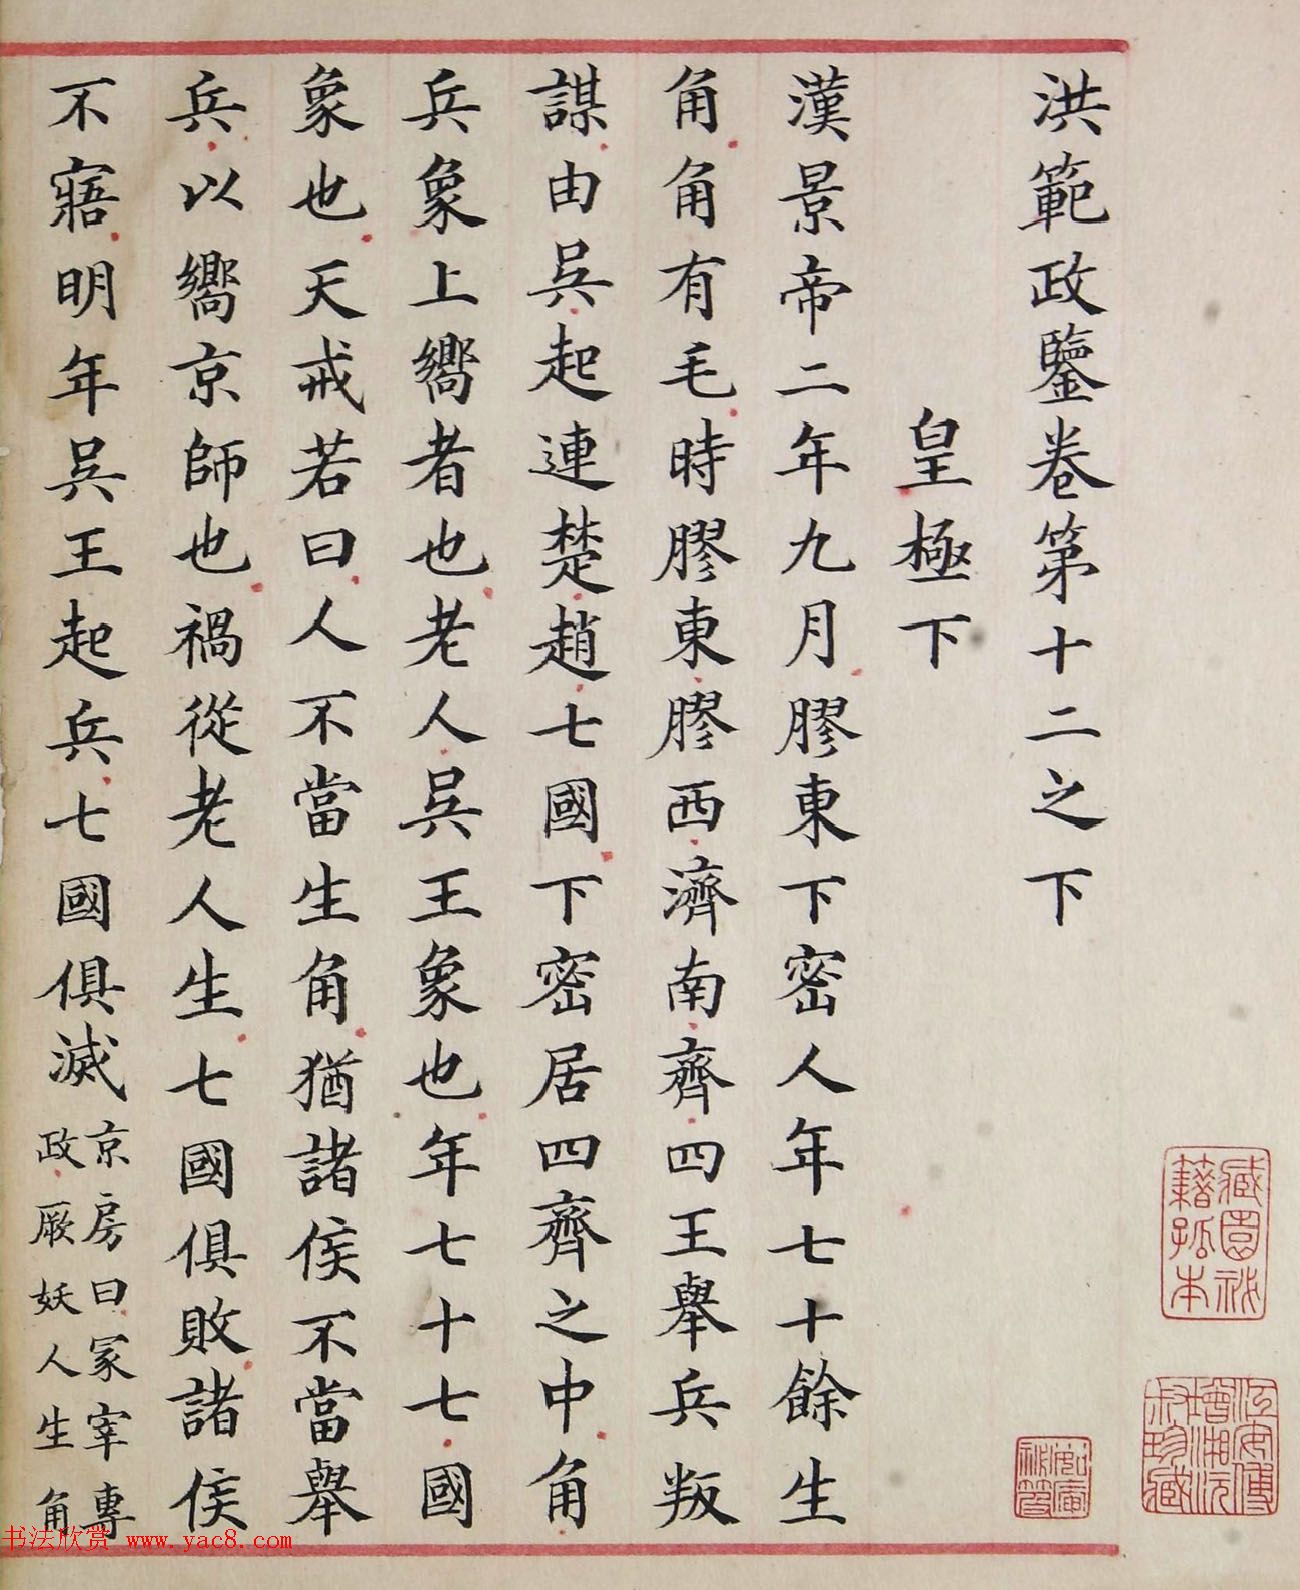 洪範政鑒卷第十二之下
皇極下
漢景帝二年九月膠東下密人年七十餘生
角角有毛時膠東膠西濟南齊四王舉兵叛
謀由吳起連楚趙七國下密居四齊之中角
兵象上嚮者也老人吳王象也年七十七國
象也天戒若曰人不當生角猶諸侯不當舉
兵以嚮京師也禍從老人生七國俱敗諸侯
不寤明年吳王起兵七國俱滅
京房曰冢宰專
政厥妖人生角
藏園祕
籍孤本
江安傅
增湘沅
叔珍藏
書法欣賞 www.yac8.com